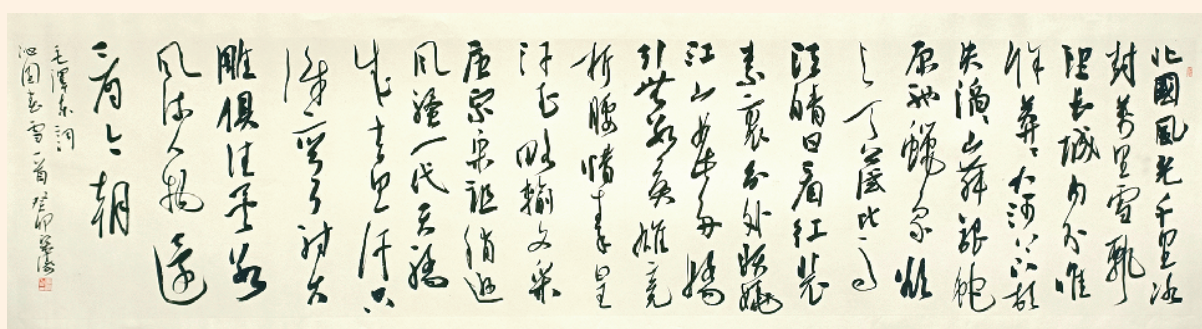 北國風光千里冰
封萬里雪飄
望長城内外唯
餘莽莽大河上下頓
失滔滔山舞銀蛇
原馳蠟象欲
与天公試比高
須晴日看紅裝
素裹分外妖嬈
江山如此多嬌
引無數英雄競
折腰惜秦皇
漢武略輸文采
唐宗宋祖稍遜
風騷一代天驕
成吉思汗只
識彎弓射大
雕俱往矣數
風流人物還
看今朝
毛澤東詞
沁園春雪一首癸卯